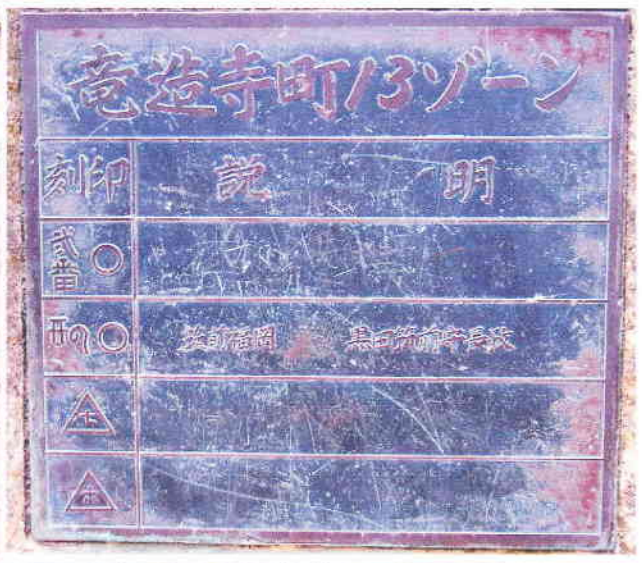 竜造寺町13ゾーン
刻印 説明
弐番○
○
筑前福岡 黒田筑前守長政